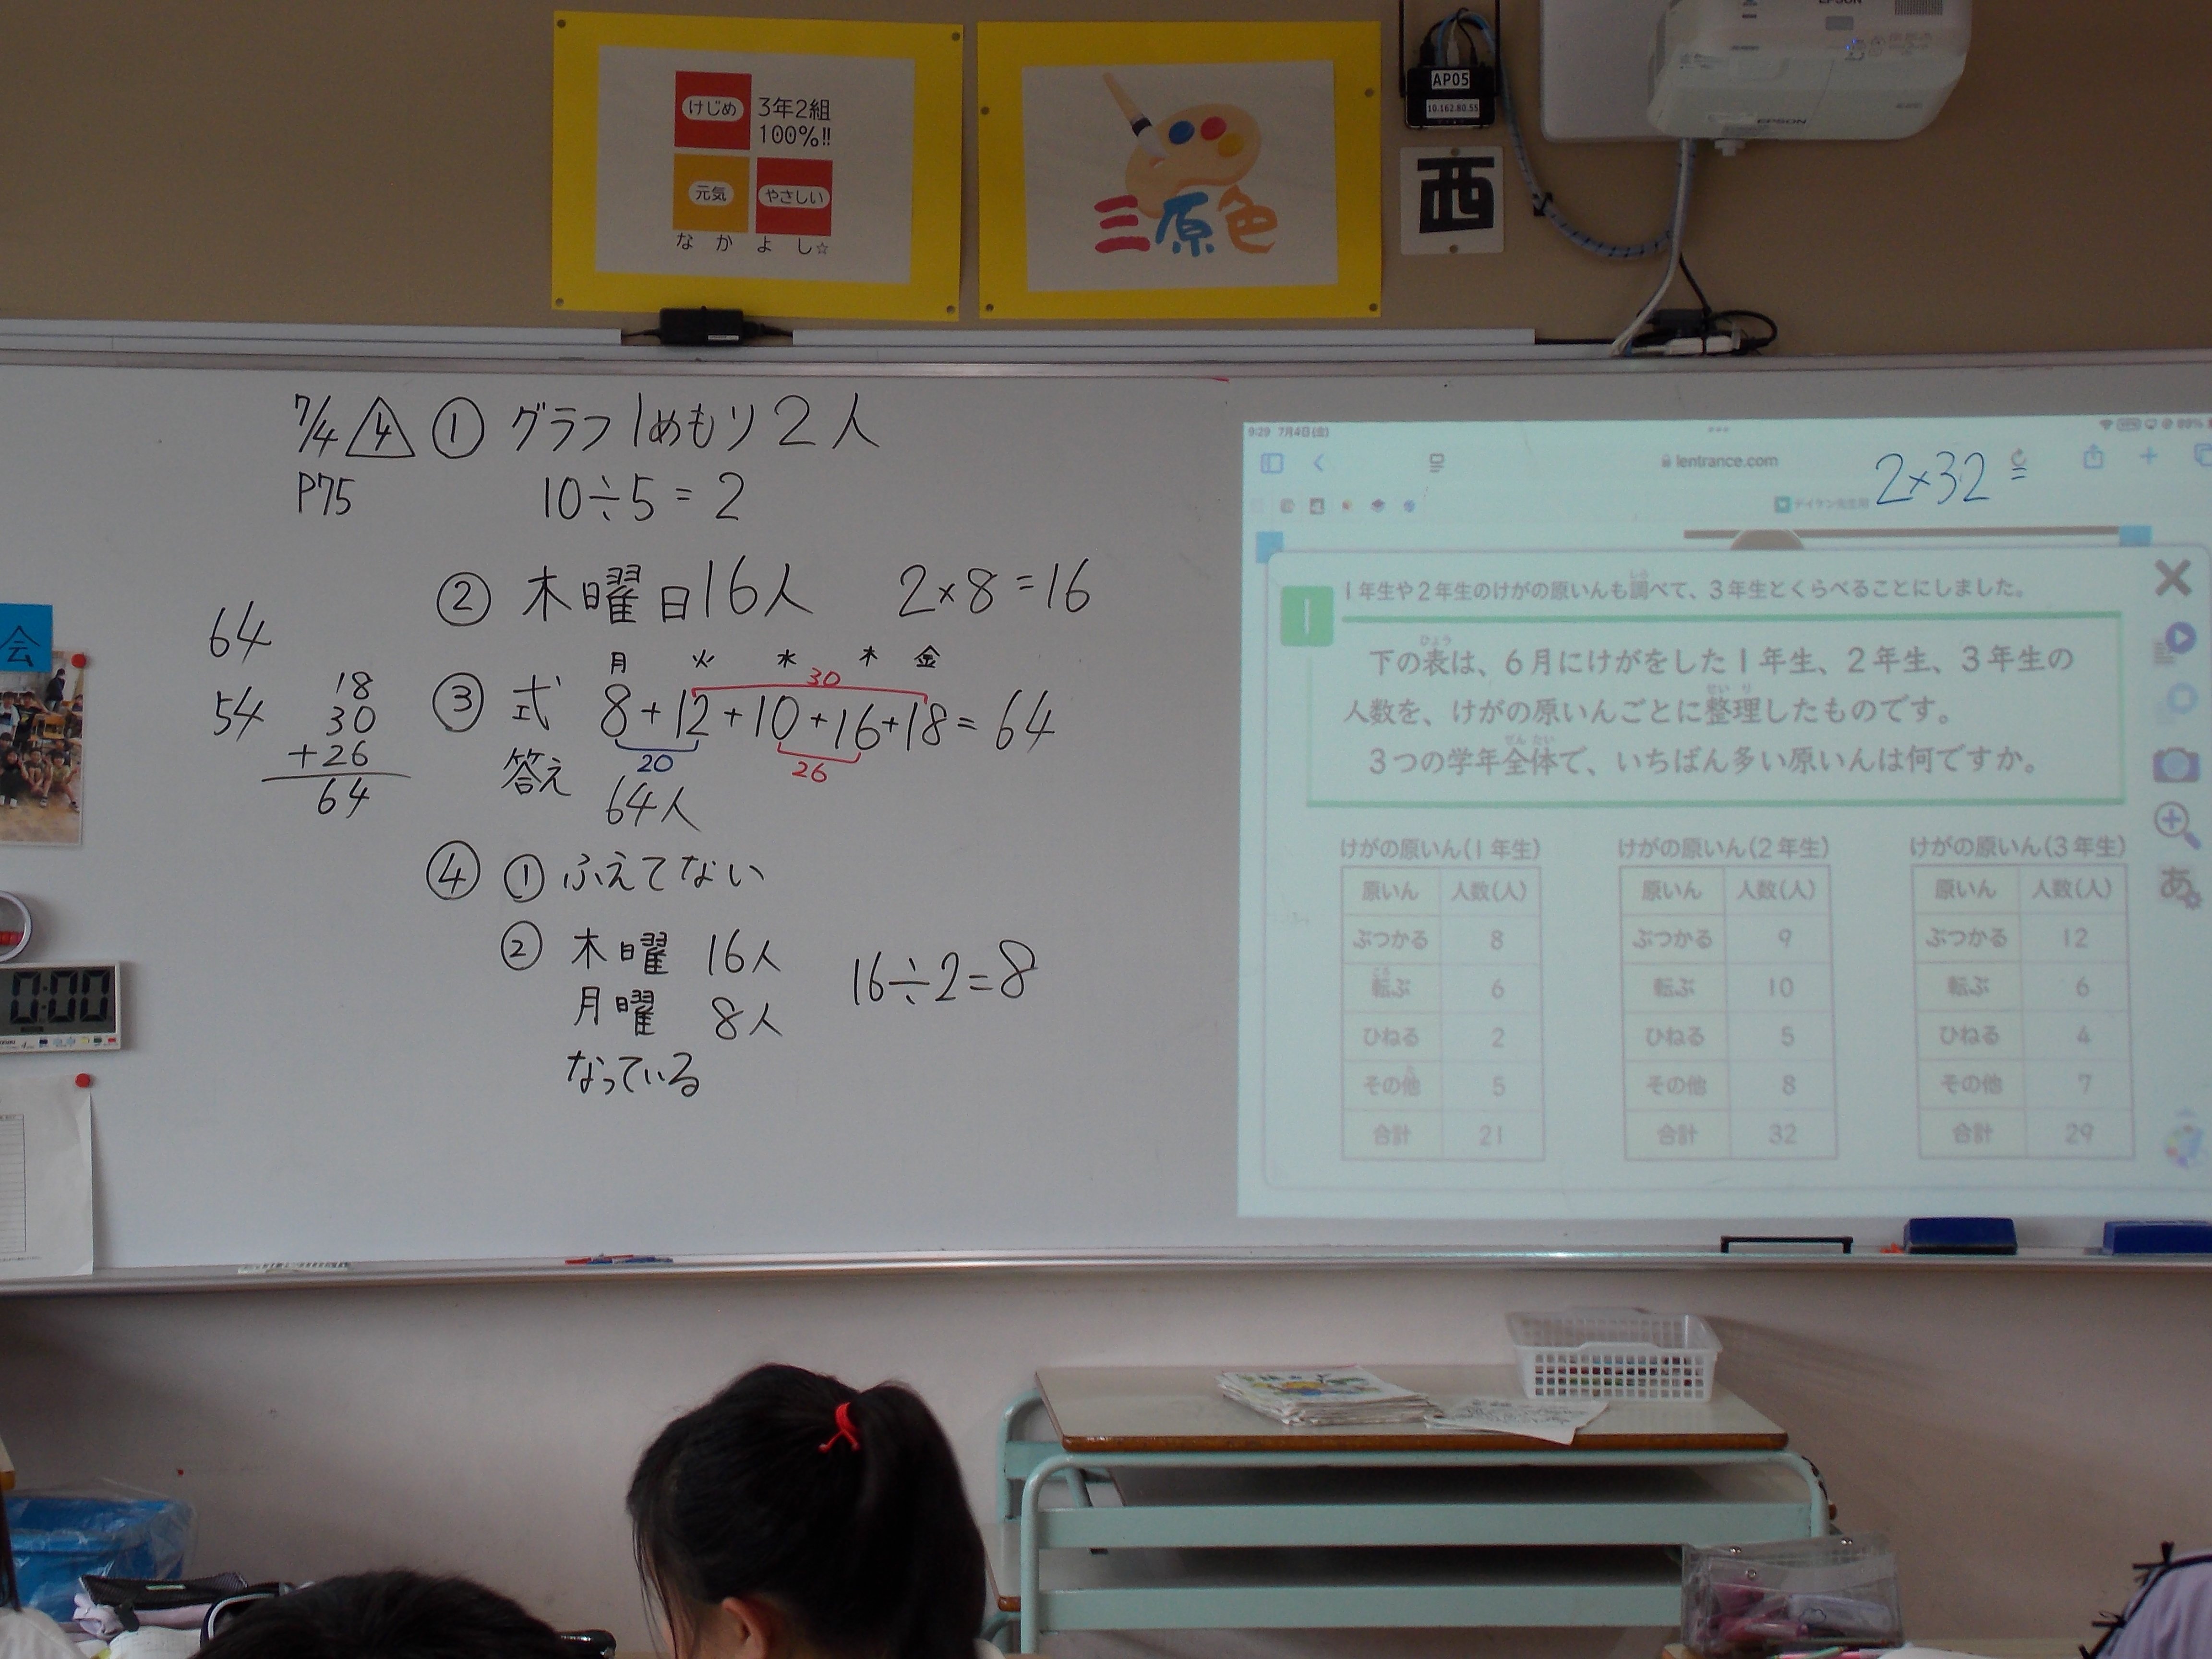 けじめ
3年2組
100%!!
元気
やさしい
なかよし☆
三原色
AP05
10.162.80.55
西
EPSON
7/4 4 ① グラフ1めもり2人
P75 10÷5=2
② 木曜日16人 2×8=16
月 火 水 木 金
30
③ 式 8+12+10+16+18=64
20 26
答え 64人
64
54
18
30
+26
64
④ ① ふえてない
② 木曜 16人
月曜 8人
16÷2=8
なっている
会
0:00
9:29 7月4日(金)
lentrance.com
2×32=
1
1年生や2年生のけがの原いんも調べて、3年生とくらべることにしました。
下の表は、6月にけがをした1年生、2年生、3年生の
人数を、けがの原いんごとに整理したものです。
3つの学年全体で、いちばん多い原いんは何ですか。
けがの原いん(1年生)
原いん 人数(人)
ぶつかる 8
転ぶ 6
ひねる 2
その他 5
合計 21
けがの原いん(2年生)
原いん 人数(人)
ぶつかる 9
転ぶ 10
ひねる 5
その他 8
合計 32
けがの原いん(3年生)
原いん 人数(人)
ぶつかる 12
転ぶ 6
ひねる 4
その他 7
合計 29
あ